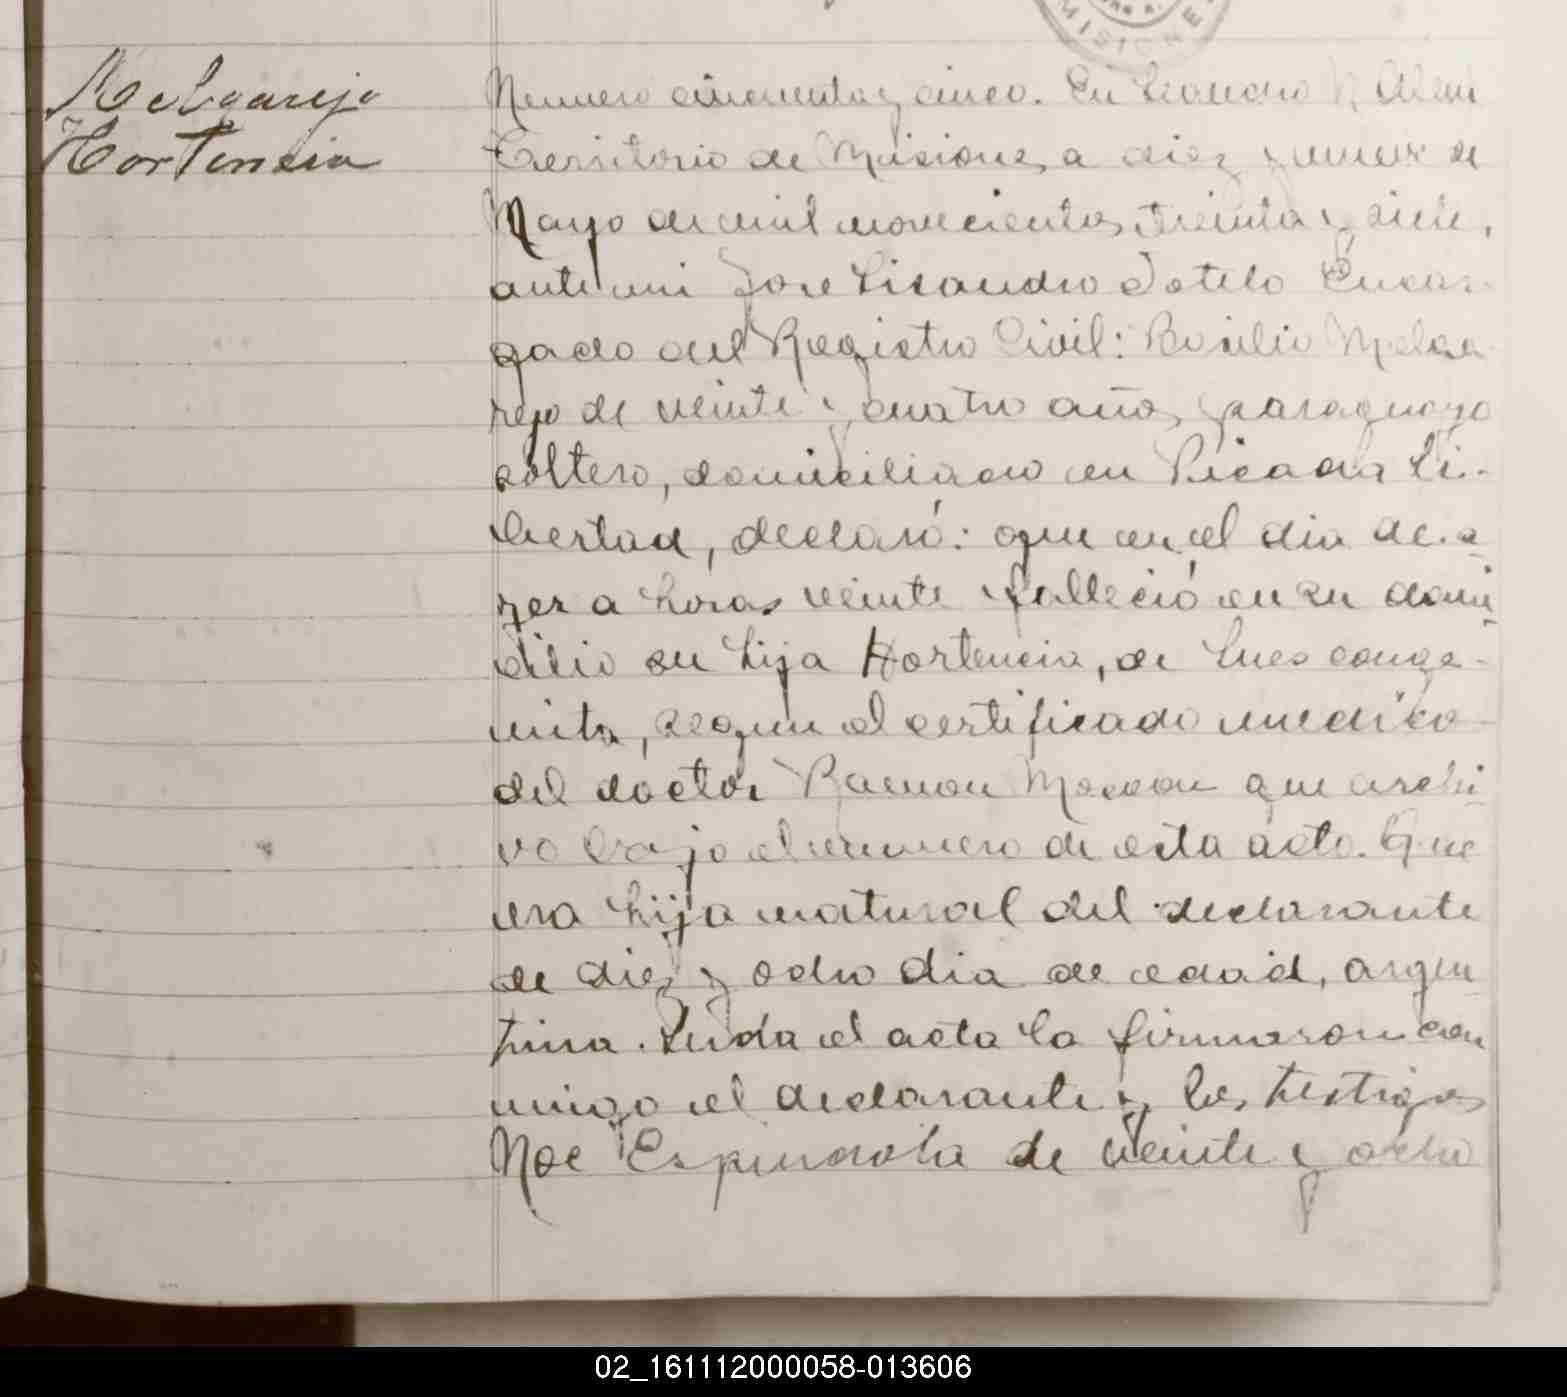 MISIONES
Melgarejo
Hortencia
Numero cincuenta y cinco. En Leandro N. Alem
Territorio de Misiones, a diez y nueve de
Mayo de mil novecientos treinta y siete,
ante mi José Lisandro Sotelo Encar-
gado del Registro Civil: Basilio Melga-
rejo de veinte y cuatro años, paraguayo
soltero, domiciliado en Picada Li-
bertad, declaró: que en el dia de a-
yer a horas veinte falleció en su domi-
cilio su hija Hortencia, de lues conge-
nita, segun el certificado medico
del doctor Ramon que archi-
vo bajo el numero de esta acta. Que
era hija natural del declarante
de diez y ocho dia de edad, argen-
tina. Leida el acta la firmaron con
migo el declarante y los testigos
Noe Espindola de veinte y ocho
02_161112000058-013606